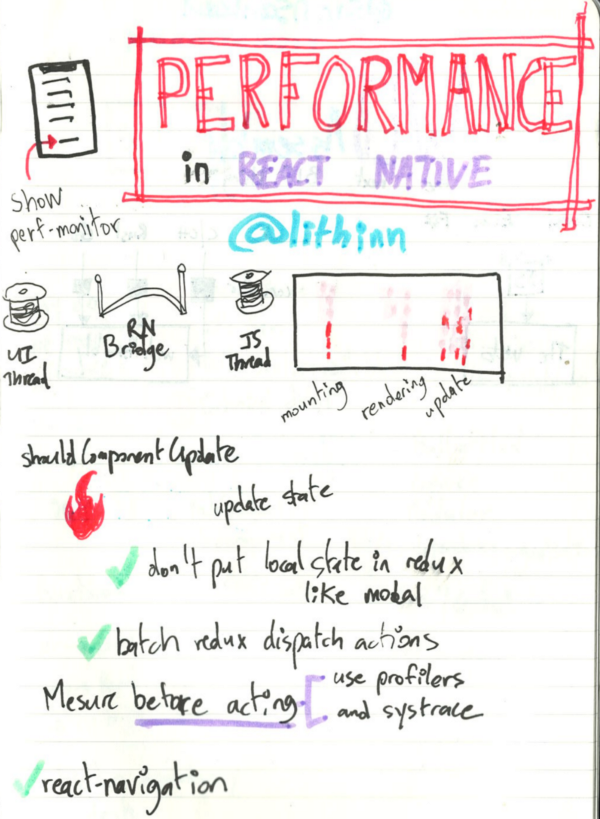 PERFORMANCE
in REACT NATIVE
show
perf-monitor
@lithinn
UI
Thread
RN
Bridge
JS
Thread
mounting
rendering
update
shouldComponentUpdate
update state
don't put local state in redux
like modal
batch redux dispatch actions
Mesure before acting
use profilers
and systrace
react-navigation